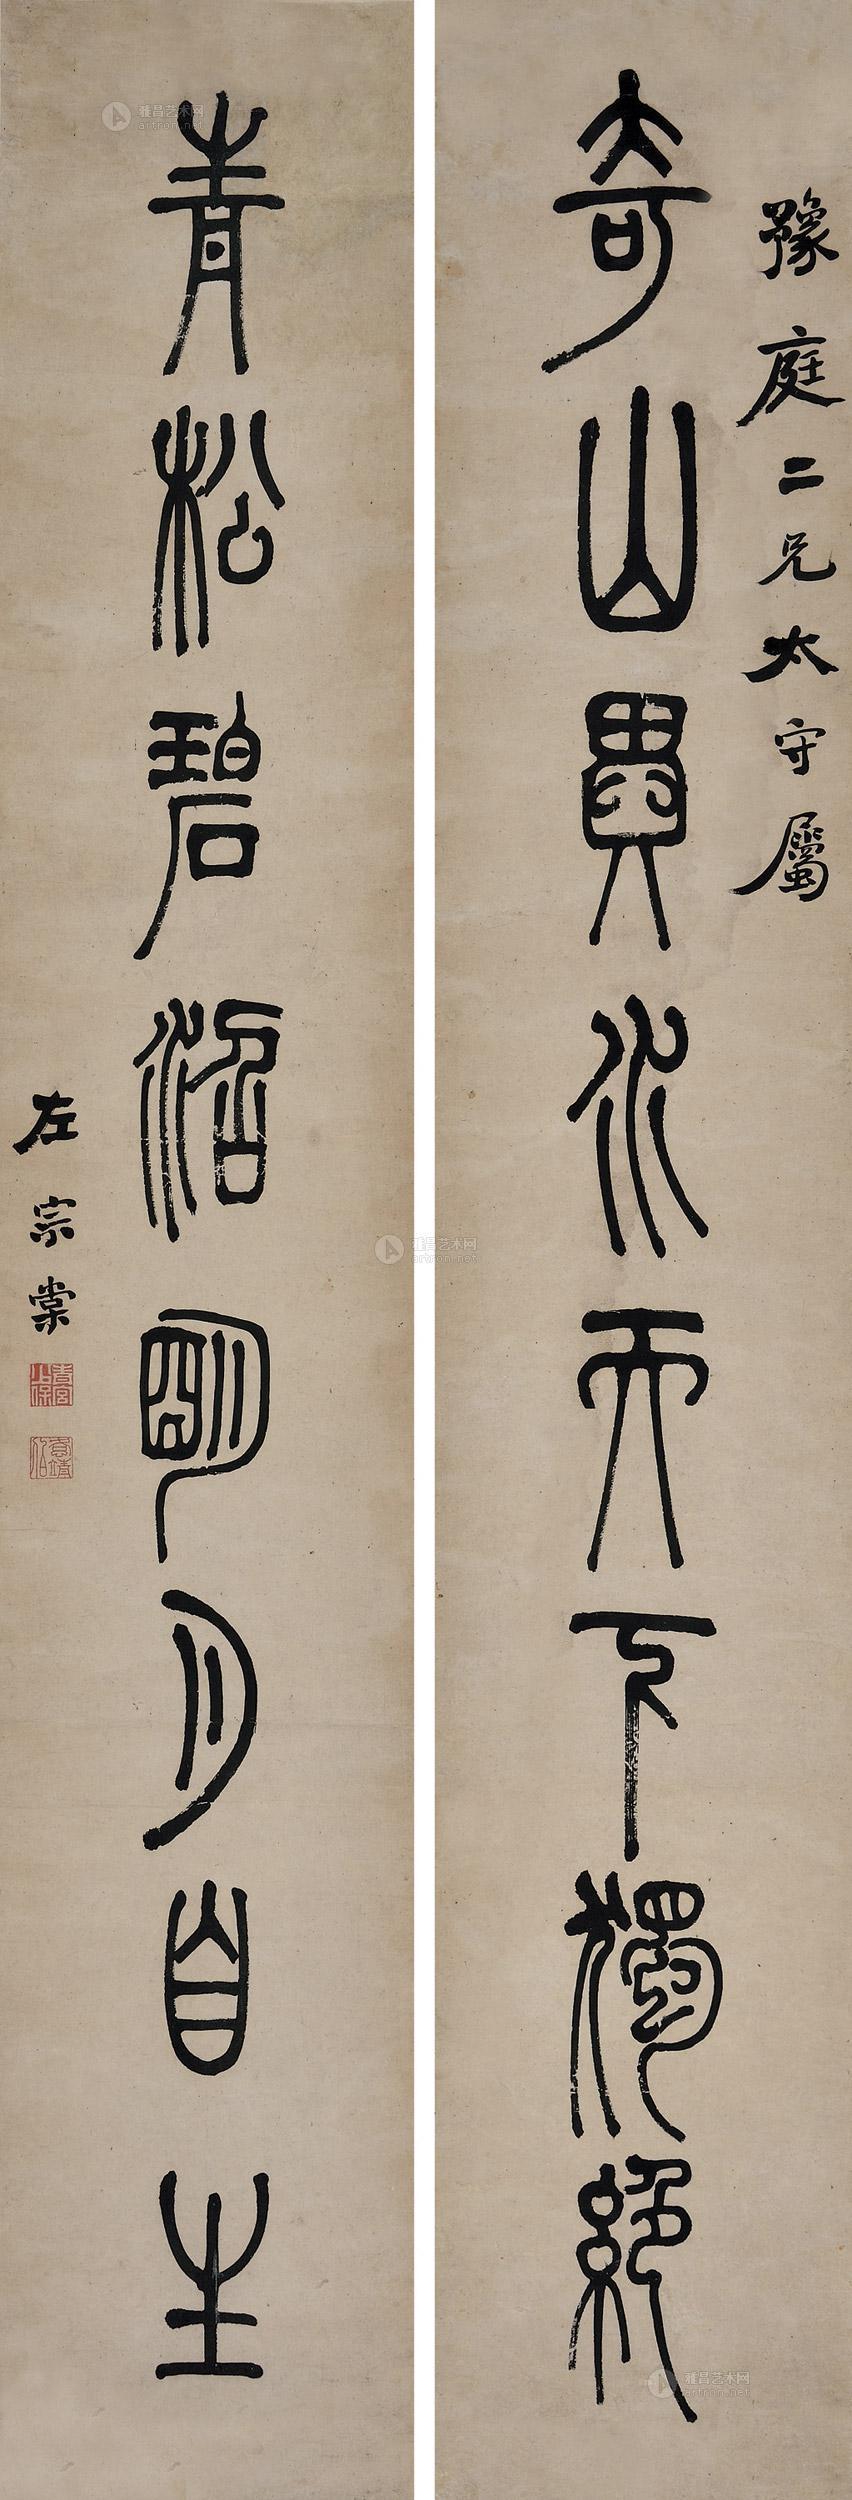 豫庭二兄太守屬
奇山異水天下獨絕
青松碧沼明月自生
左宗棠
青宮少保
恪靖伯
雅昌艺术网
artron.net
雅昌艺术网
artron.net
雅昌艺术网
artron.net